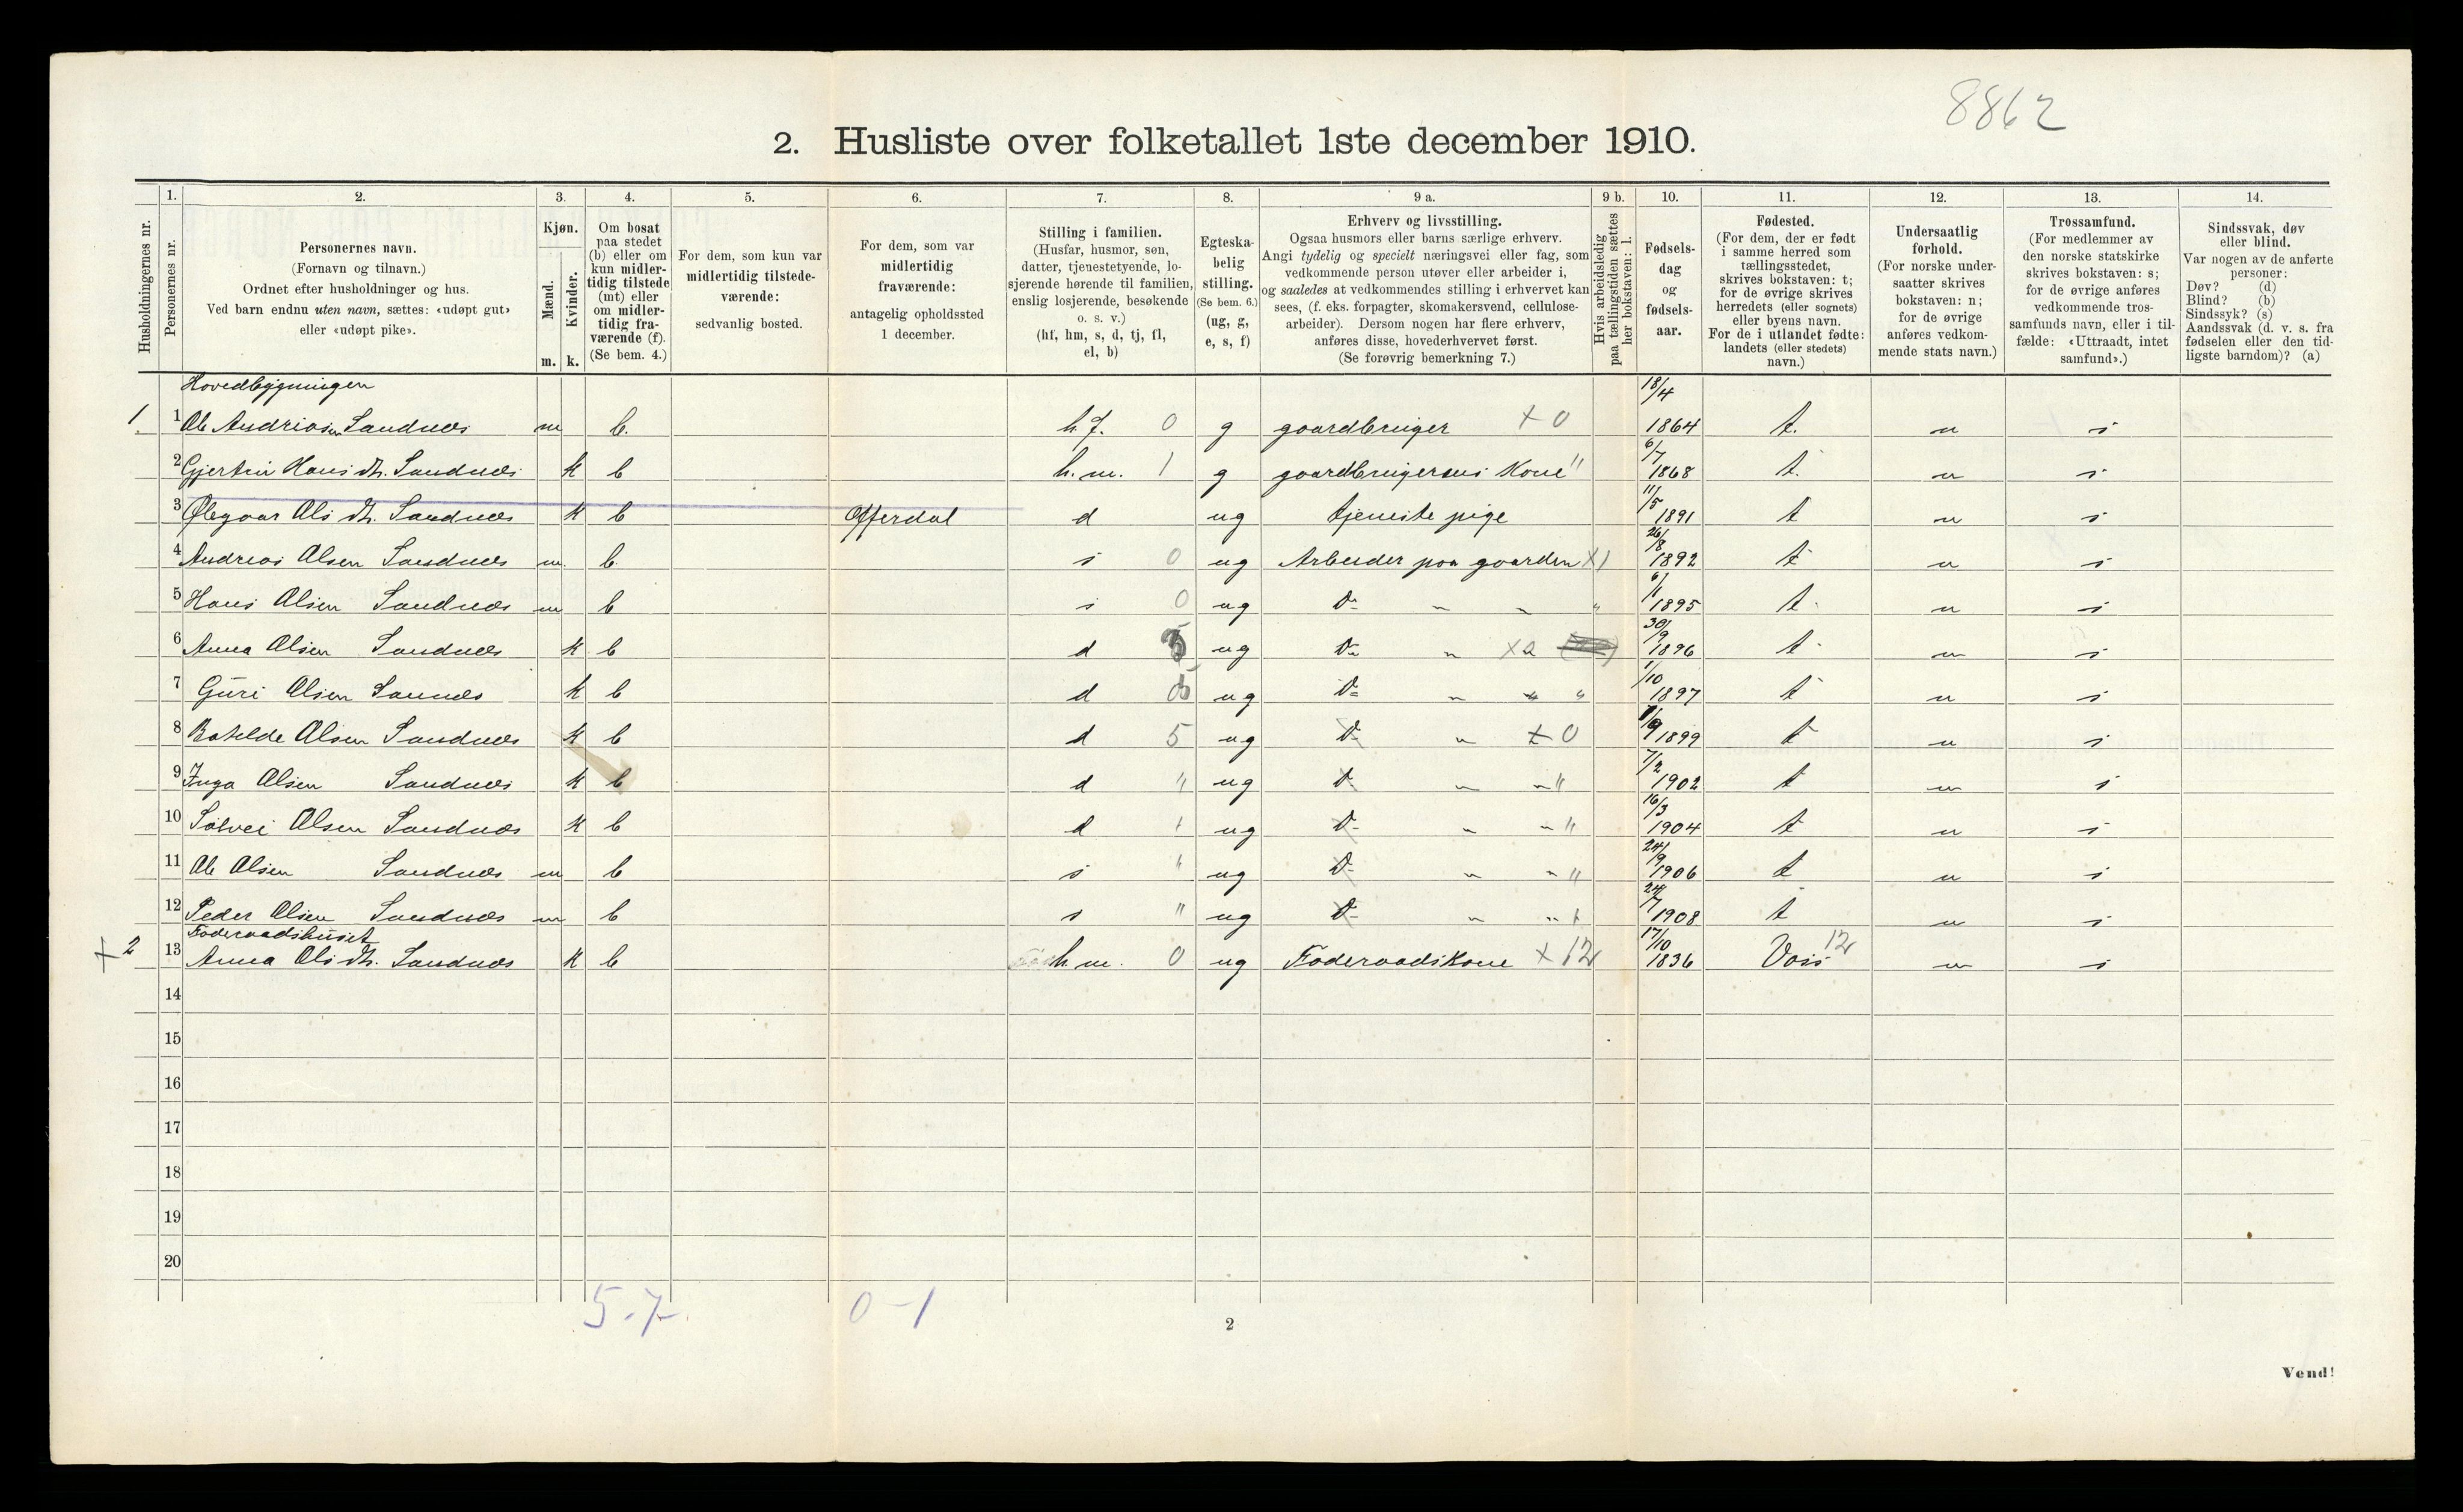 8862
2. Husliste over folketallet 1ste december 1910.
Husholdningernes nr.
1. Personernes nr.
2. Personernes navn. (Fornavn og tilnavn.) Ordnet efter husholdninger og hus. Ved barn endnu uten navn, sættes: «udøpt gut» eller «udøpt pike».
3. Kjøn. Mænd. m. Kvinder. k.
4. Om bosat paa stedet (b) eller om kun midlertidig tilstede (mt) eller om midlertidig fraværende (f). (Se bem. 4.)
5. For dem, som kun var midlertidig tilstedeværende: sedvanlig bosted.
6. For dem, som var midlertidig fraværende: antagelig opholdssted 1 december.
7. Stilling i familien. (Husfar, husmor, søn, datter, tjenestetyende, losjerende hørende til familien, enslig losjerende, besøkende o. s. v.) (hf, hm, s, d, tj, fl, el, b)
8. Egteskabelig stilling. (Se bem. 6.) (ug, g, e, s, f)
9 a. Erhverv og livsstilling. Ogsaa husmors eller barns særlige erhverv. Angi tydelig og specielt næringsvei eller fag, som vedkommende person utøver eller arbeider i, og saaledes at vedkommendes stilling i erhvervet kan sees, (f. eks. forpagter, skomakersvend, cellulosearbeider). Dersom nogen har flere erhverv, anføres disse, hovederhvervet først. (Se forøvrig bemerkning 7.)
9 b. Hvis arbeidsledig paa tællingstiden sættes her bokstaven: l.
10. Fødselsdag og fødselsaar.
11. Fødested. (For dem, der er født i samme herred som tællingsstedet, skrives bokstaven: t; for de øvrige skrives herredets (eller sognets) eller byens navn. For de i utlandet fødte: landets (eller stedets) navn.)
12. Undersaatlig forhold. (For norske undersaatter skrives bokstaven: n; for de øvrige anføres vedkommende stats navn.)
13. Trossamfund. (For medlemmer av den norske statskirke skrives bokstaven: s; for de øvrige anføres vedkommende trossamfunds navn, eller i tilfælde: «Uttraadt, intet samfund».)
14. Sindssvak, døv eller blind. Var nogen av de anførte personer: Døv? (d) Blind? (b) Sindssyk? (s) Aandssvak (d. v. s. fra fødselen eller den tidligste barndom)? (a)
Hovedbygningen
1. 1 Ole Andriasen Sandnes m b. h.f. 0 g gaardbruger + 0 18/4 1864 t. n s
2 Gjertin Hans dt. Sandnes k b h.m. 1 g gaardbrugerens Kone " 6/7 1868 t. n s
3 Ølegaar Ols dt. Sandnes k b Offerdal d ug tjeneste pige 11/5 1891 t n s
4 Andreas Olsen Sandnes m. b. s 0 ug Arbeider paa gaarden x 1 26/8 1892 t n s
5 Hans Olsen Sandnes m b s 0 ug Do " " " 6/1 1895 t. n s
6 Anna Olsen Sandnes k b d 5 ug Do " x a 30/9 1896 t n s
7 Guri Olsen Sannes k b d ug Do " " " 1/10 1897 t n s
8 Botelde Olsen Sandnes k b d 5 ug Do " + 0 1899 t n s
9 Inga Olsen Sandnes k b d " ug Do " " " 7/2 1902 t n s
10 Solvei Olsen Sandnes k b d ug Do " " " 16/3 1904 t n s
11 Ole Olsen Sandnes m b s ug Do " " " 24/9 1906 t n s
12 Peder Olsen Sandnes m b s " ug Do " " 24/7 1908 t n s
Føderaadshuset
+ 2 13 Anna Ols dt. Sandnes k b h m. 0 ug Føderaadskone + 12 17/10 1836 Voss 12 n s
14
15
16
17
18
19
20
5-7. 0-1
2
Vend!